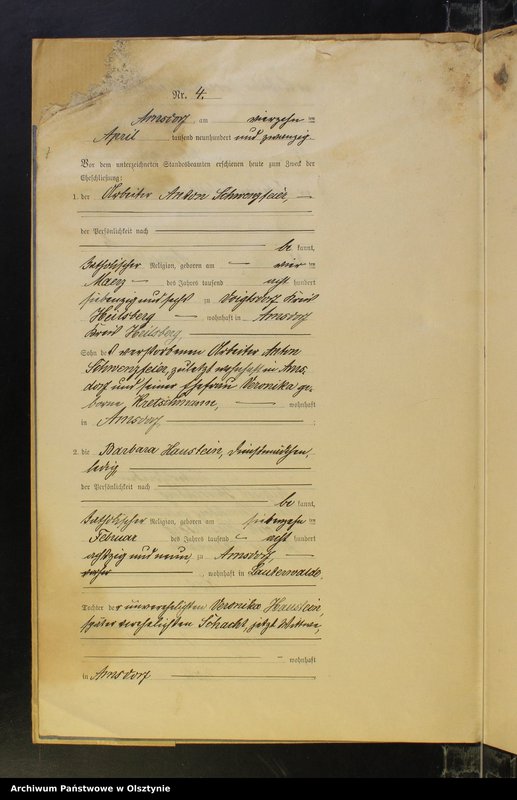 Nr. 4.
Arnsdorf am vierzehn ten
April tausend neunhundert und zwanzig
Vor dem unterzeichneten Standesbeamten erschienen heute zum Zweck der
Eheschließung:
1. der Arbeiter Anton Schwenzfeier, —
der Persönlichkeit nach
be kannt,
katholischer Religion, geboren am — vier ten
Maerz — des Jahres tausend acht hundert
siebenzig und sechs zu Voigtsdorf Kreis
Heilsberg — wohnhaft in Arnsdorf
Kreis Heilsberg
Sohn des verstorbenen Arbeiter Anton
Schwenzfeier, zuletzt wohnhaft in Arns-
dorf und seiner Ehefrau Veronika ge-
borene Kretschmann, — wohnhaft
in Arnsdorf
2. die Barbara Haustein, Dienstmädchen
ledig
der Persönlichkeit nach
be kannt,
katholischer Religion, geboren am siebenzehn ten
Februar des Jahres tausend — acht hundert
achtzig und neun, zu Arnsdorf —
, wohnhaft in Lauterwalde,
Tochter der unverehelichten Veronika Haustein,
später verehelichten Schacht, jetzt Wittwe,
— wohnhaft
in Arnsdorf
Archiwum Państwowe w Olsztynie